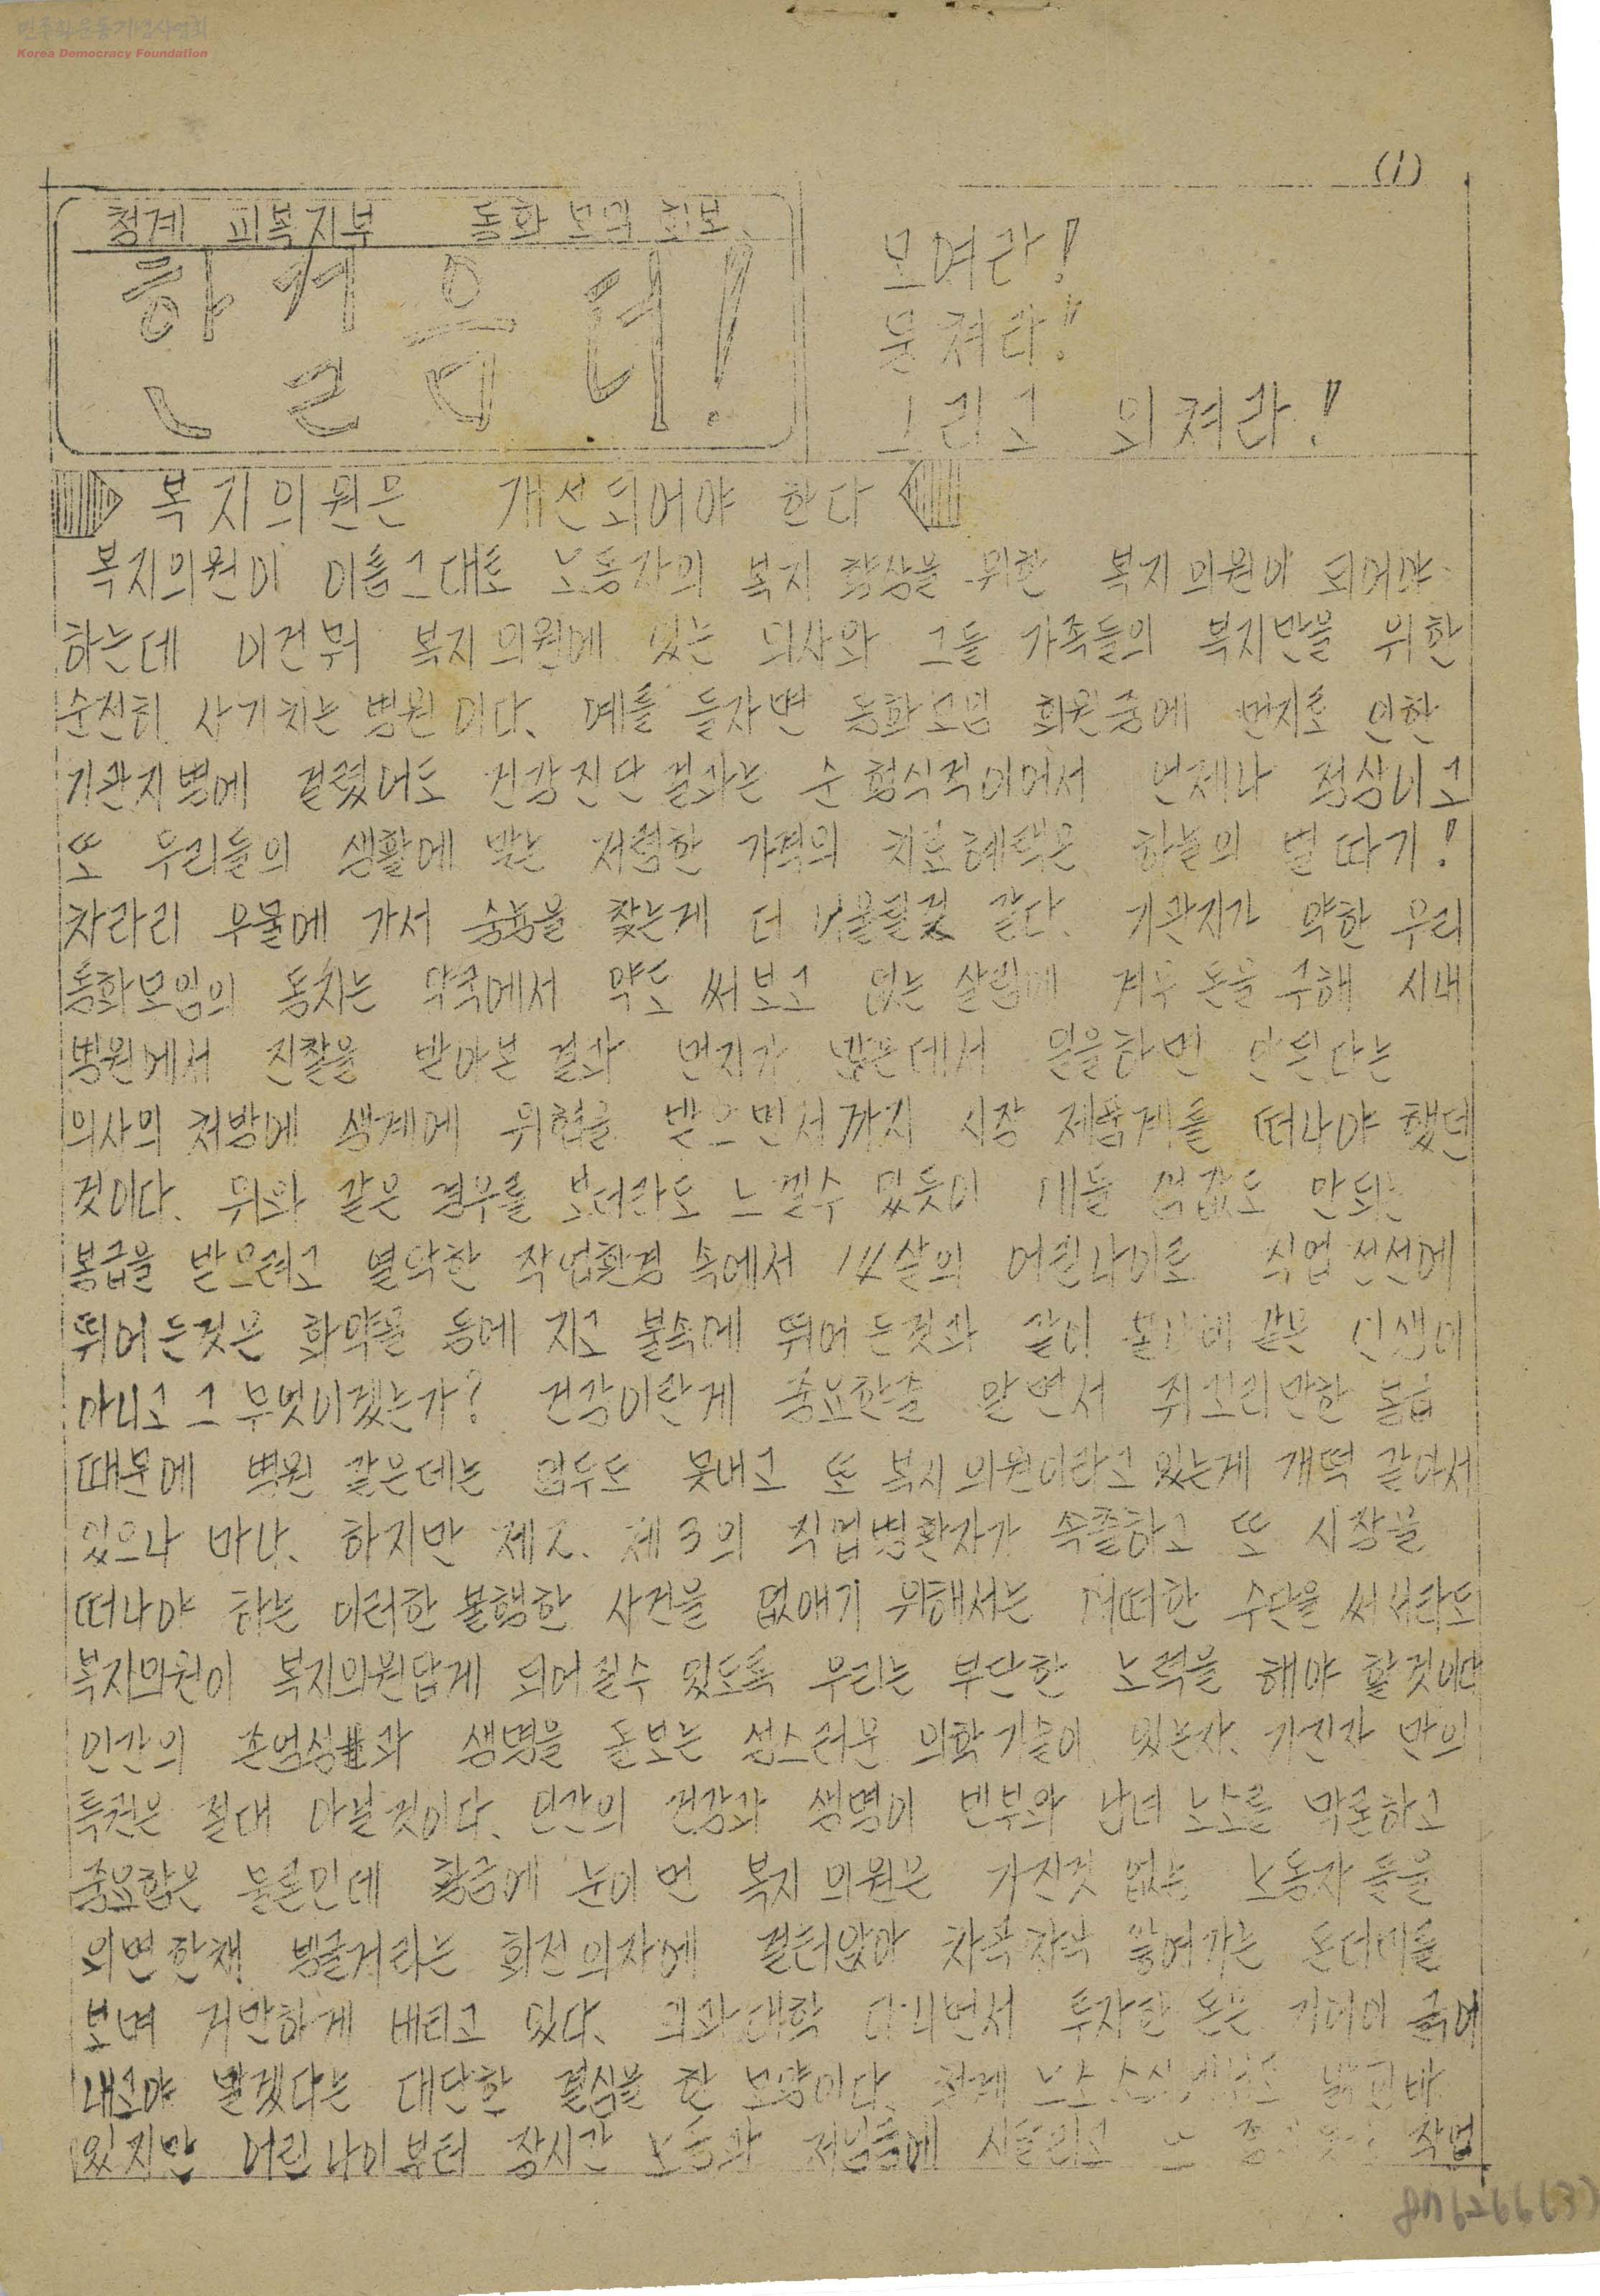 민주화운동기념사업회
Korea Democracy Foundation
(1)
청계 피복지부 동화모임 회보
한걸음 더!
모여라!
뭉쳐라!
그리고 외쳐라!
복지의원은 개선되어야 한다
복지의원이 이름그대로 노동자의 복지 향상을 위한 복지의원이 되어야
하는데 이건뭐 복지의원에 있는 의사와 그들 가족들의 복지만을 위한
순전히 사기치는 병원이다. 예를 들자면 동화모임 회원중에 먼지로 인한
기관지병에 걸렸어도 건강진단결과는 순 형식적이어서 언제나 정상이고
또 우리들의 생활에 맞는 저렴한 가격의 치료혜택은 하늘의 별따기!
차라리 우물에 가서 숭늉을 찾는게 더 같다. 기관지가 약한 우리
동화모임의 동지는 약국에서 약도 써보고 없는 살림에 겨우 돈을 구해 시내
병원에서 진찰을 받아본 결과 먼지가 많은데서 일을하면 안된다는
의사의 처방에 생계에 위협을 받으면서까지 시장 제품계를 떠나야 했던
것이다. 위와 같은 경우를 보더라도 느낄수 있듯이 개들 껌값도 안되는
봉급을 받으려고 열악한 작업환경 속에서 14살의 어린나이로 직업전선에
뛰어든것은 화약을 등에 지고 불속에 뛰어든것과 같이 불나비 같은 인생이
아니고 그 무엇이겠는가? 건강이란게 중요한줄 알면서 쥐꼬리만한 봉급
때문에 병원 같은데는 엄두도 못내고 또 복지의원이라고 있는게 개떡 같아서
있으나 마나. 하지만 제2. 제3의 직업병환자가 속출하고 또 시장을
떠나야 하는 이러한 불행한 사건을 없애기 위해서는 어떠한 수단을 써서라도
복지의원이 복지의원답게 되어질수 있도록 우리는 부단한 노력을 해야 할것이다
인간의 존엄성과 생명을 돌보는 성스러운 의학기술이 있는자. 가진자 만의
특권은 절대 아닐것이다. 인간의 건강과 생명이 빈부와 남녀 노소를 막론하고
중요함은 물론인데 황금에 눈이먼 복지의원은 가진것 없는 노동자들을
외면한채 빙글거리는 회전의자에 걸터앉아 차곡차곡 쌓여가는 돈더미를
보며 거만하게 버티고 있다. 의과대학 다니면서 투자한 돈은 기어이 긁어
내고야 말겠다는 대단한 결심을 한 모양이다. 청계 노조 밝힌바
있지만 어린나이부터 장시간 노동과 저임금에 시달리고 또 작업